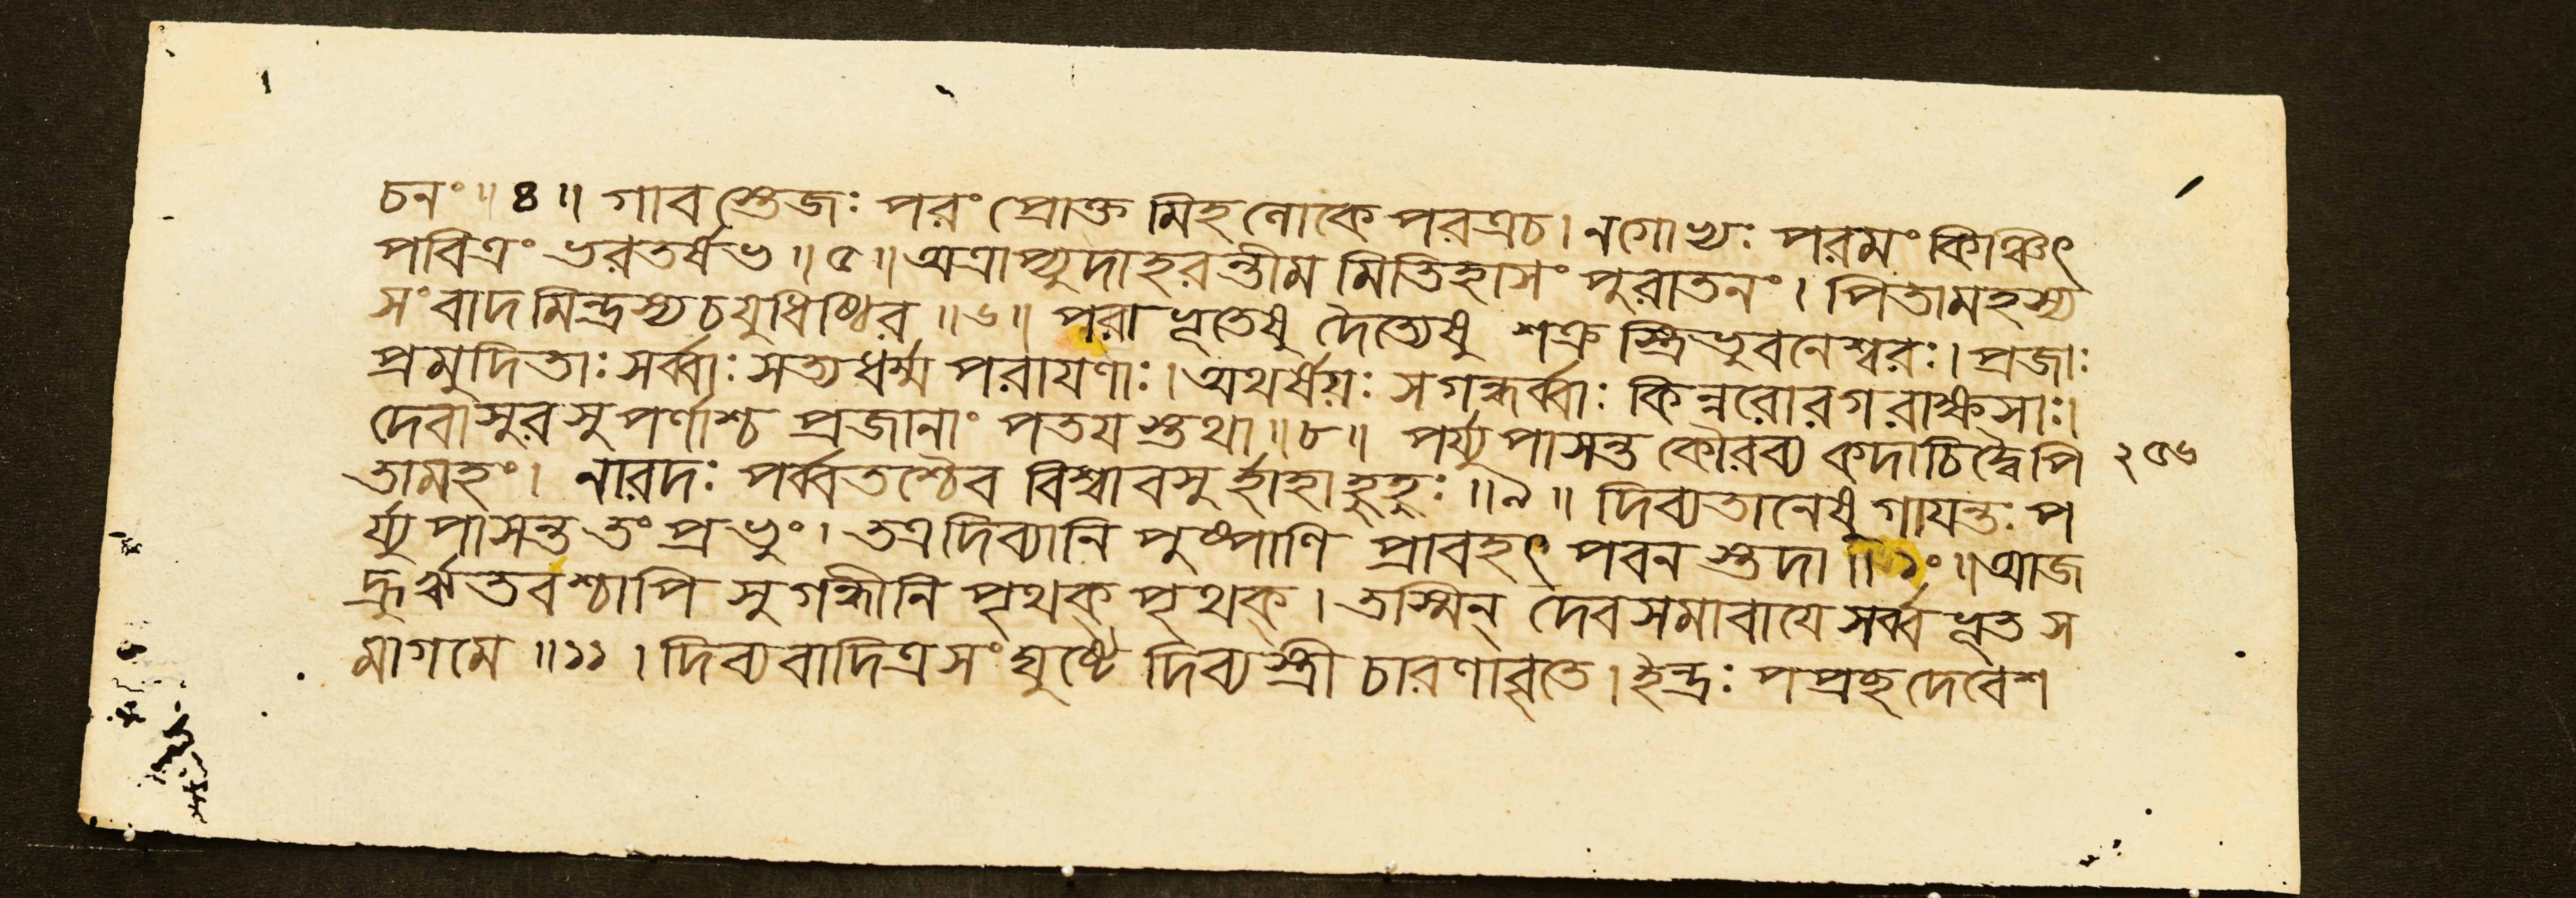 চনং ॥ ৪ ॥ গাবস্তেজঃ পরং প্রোক্তমিহলোকেপরত্রচ । নগোভ্যঃ পরমং কিঞ্চিৎ
পবিত্রং ভরতর্ষভ ॥ ৫ ॥ অত্রাপ্যুদাহরন্তীমমিতিহাসং পুরাতনং । পিতামহস্য
সংবাদমিন্দ্রস্যচযুধিষ্ঠির ॥ ৬ ॥ পরাভূতেষু দৈত্যেষু শক্রস্ত্রিভুবনেশ্বরঃ । প্রজাঃ
প্রমুদিতাঃ সর্ব্বাঃ সত্যধর্ম্মপরাযণাঃ । অথর্ষয়ঃ সগন্ধর্ব্বাঃ কিন্নরোরগরাক্ষসাঃ ।
দেবাসুরসুপর্ণাশ্চ প্রজানাং পতযস্তথা ॥ ৮ ॥ পর্য্যুপাসন্তকৌরব্য কদাচিদ্বৈপি ২৫৬
তামহং । নারদঃ পর্ব্বতশ্চৈব বিশ্বাবসুর্হাহাহূহূঃ ॥ ৯ ॥ দিব্যতানেষু গাযন্তঃ প
র্য্যুপাসন্ততং প্রভুং । তত্রদিব্যানি পুষ্পাণি প্রাবহৎ পবনস্তদা ॥ ১০ ॥ আজ
হ্রুর্ঋতবশ্চাপি সুগন্ধীনি পৃথক্ পৃথক্ । তস্মিন্ দেবসমাবাযে সর্ব্বভূতস
মাগমে ॥ ১১ । দিব্যবাদিত্রসংঘুষ্টে দিব্যস্ত্রীচারণাবৃতে । ইন্দ্রঃ পপ্রচ্ছদেবেশ